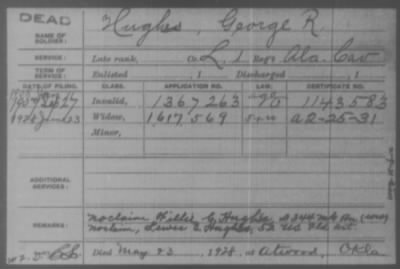 DEAD
NAME OF SOLDIER: Hughes, George R.
SERVICE: Late rank, Co. L, 1 Reg't Ala. Cav
TERM OF SERVICE: Enlisted , 1 Discharged , 1
DATE OF FILING. CLASS. APPLICATION NO. LAW. CERTIFICATE NO.
Invalid, 1367263 1143583
1928 June 23 Widow, 1617569 a2-25-31
Minor,
ADDITIONAL SERVICES:
REMARKS: noclaim Willie C. Hughes,
noclaim, Lewis C. Hughes, 52 US Fld Art.
Died May 23, 1928, at Atwood, Okla